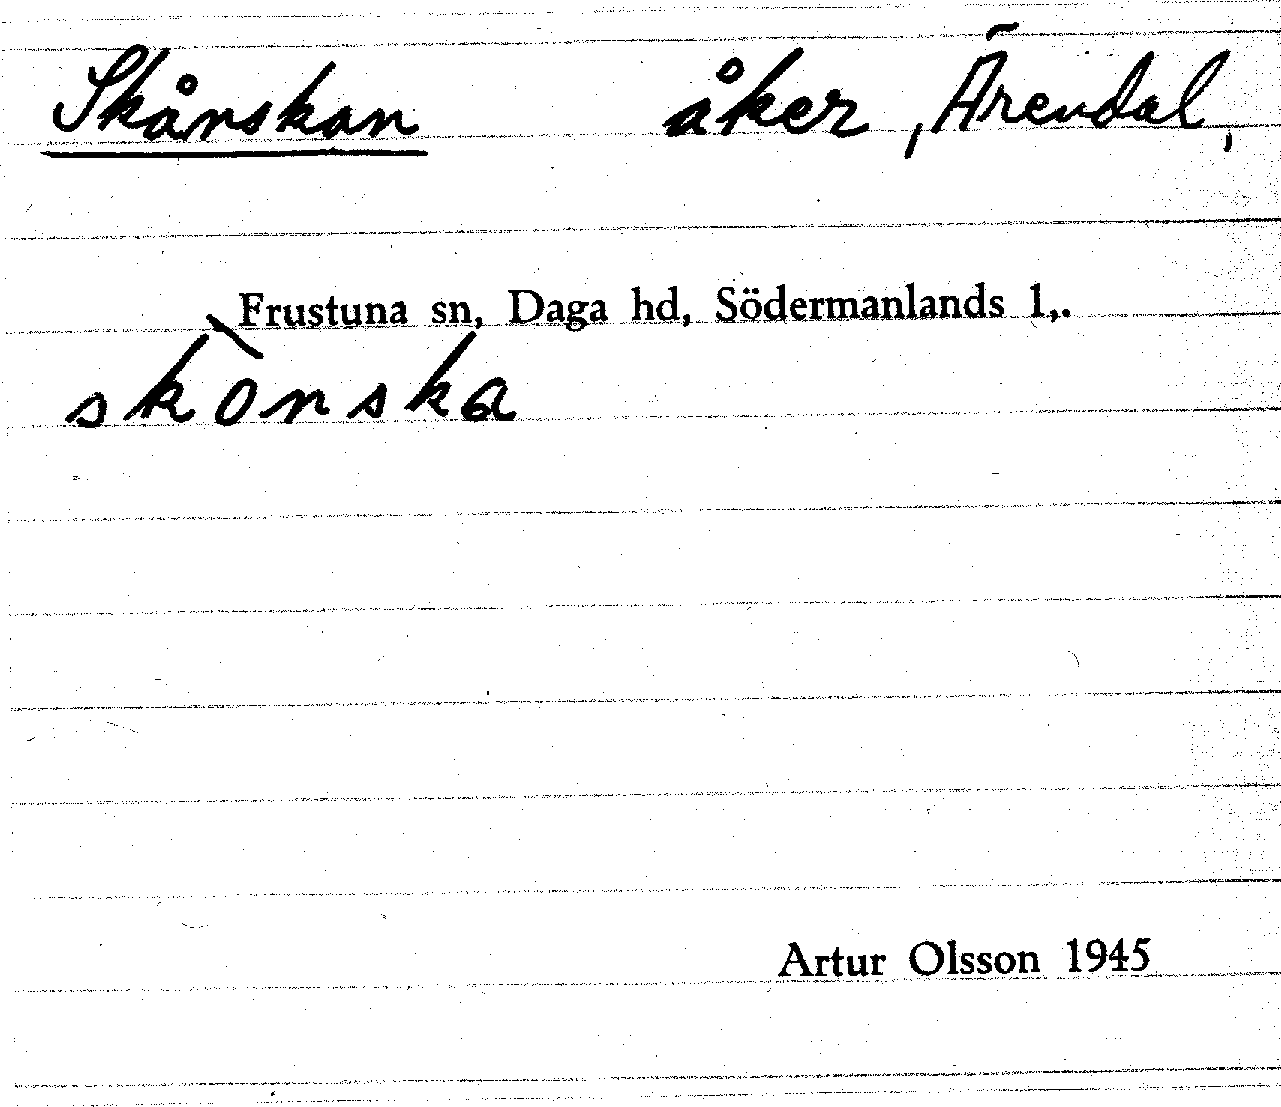 Skånskan åker, Ärendal,
Frustuna sn, Daga hd, Södermanlands l,.
skònska
Artur Olsson 1945